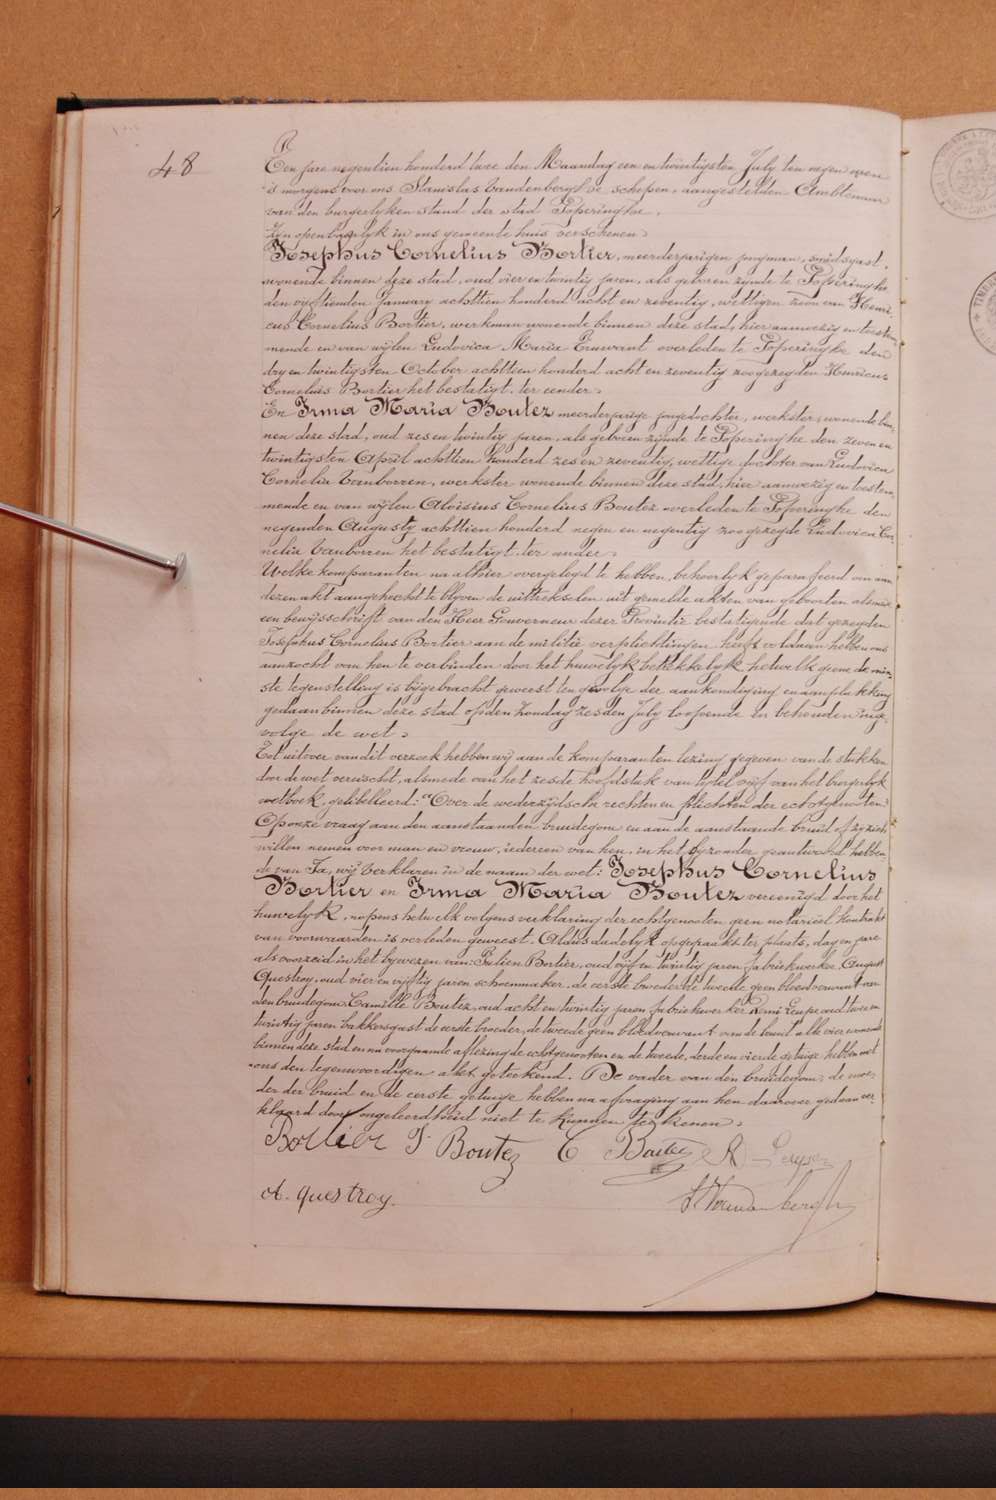 48
Een jare negentien honderd twee den Maandag een en twintigsten July ten negen uren
's morgens voor ons Stanislas Vandenberghe schepen, aangestelden Ambtenaar
van den burgerlyken stand der stad Poperinghe,
Zyn openbaarlyk in ons gemeente huis verschenen:
Josephus Cornelius Bortier, meerderjarigen jongman, smidsgast,
wonende binnen deze stad, oud vier en twintig jaren, als geboren zynde te Poperinghe
den vyftienden January achttien honderd acht en zeventig, wettigen zoon van Henri-
cus Cornelius Bortier, werkman wonende binnen deze stad, hier aanwezig en toestem-
mende en van wylen Ludovica Maria overleden te Poperinghe den
dry en twintigsten October achttien honderd acht en zeventig zoo gezegden Henricus
Cornelius Bortier het bestatigt. ter eender.
En Irma Maria Boutez meerderjarige jongedochter, werkster, wonende bin-
nen deze stad, oud zes en twintig jaren, als geboren zynde te Poperinghe den zeven en
twintigsten April achttien honderd zes en zeventig, wettige dochter van Ludovica
Cornelia Vanborren, werkster wonende binnen deze stad, hier aanwezig en toestem-
mende en van wylen Aloïsius Cornelius Boutez overleden te Poperinghe den
negenden Augusty achttien honderd negen en negentig zoo gezegde Ludovica Cor-
nelia Vanborren het bestatigt. ter ander:
Welke komparanten na alhier overgelegd te hebben, behoorlyk geparafeerd om aan
dezen akt aangehecht te blyven de uittrekselen uit gemelde akten van geboorten alsmede
een bewysschrift van den Heer Gouverneur dezer Provintie bestatigende dat gezegden
Josephus Cornelius Bortier aan de militie verplichtingen heeft voldaan hebben ons
aanzocht van hen te verbinden door het huwelyk betrekkelyk hetwelk geene de min-
ste tegenstelling is bygebracht geweest ten gevolge der aankondiging en aanplakking
gedaan binnen deze stad op den Zondag zesden July loopende en behouden inge-
volge de wet:
Tot uitvoer van dit verzoek hebben wy aan de komparanten lezing gegeven van de stukken
door de wet vereischt, alsmede van het zesde hoofdstuk van tytel vyf van het burgerlyk
wetboek, gelibelleerd: "Over de wederzydsche rechten en plichten der echtgenooten"
Op onze vraag aan den aanstaanden bruidegom en aan de aanstaande bruid of zy zich
willen nemen voor man en vrouw, iedereen van hen, in het byzonder geantwoord hebben-
de van Ja, wy verklaren in de naam der wet: Josephus Cornelius
Bortier en Irma Maria Boutez vereenigd door het
huwelyk, nopens hetwelk volgens verklaring der echtgenooten geen notarieel kontrakt
van voorwaarden is verleden geweest. Aldus dadelyk opgemaakt ter plaats, dag en jare
als voorzeid in het bywezen van: Julien Bortier, oud vyf en twintig jaren fabriekwerker, August
Questroy, oud vier en vyftig jaren schoenmaker, de eerste broeder de tweede geen bloedverwant van
den bruidegom, Camille Boutez, oud acht en twintig jaren fabriekwerker Remi Leupe oud twee en
twintig jaren bakkersgast de eerste broeder, de tweede geen bloedverwant van de bruid alle vier wonende
binnen deze stad en na voorgaande aflezing de echtgenooten en de tweede, derde en vierde getuige hebben met
ons den tegenwoordigen akt geteekend. De vader van den bruidegom, de moe-
der der bruid en de eerste getuige hebben na afvraging aan hen daarover gedaan ver-
klaard door ongeleerdheid niet te kunnen teekenen.
Bortier J Boutez C Boutez R Leupe
A. Questroy. S Vandenberghe